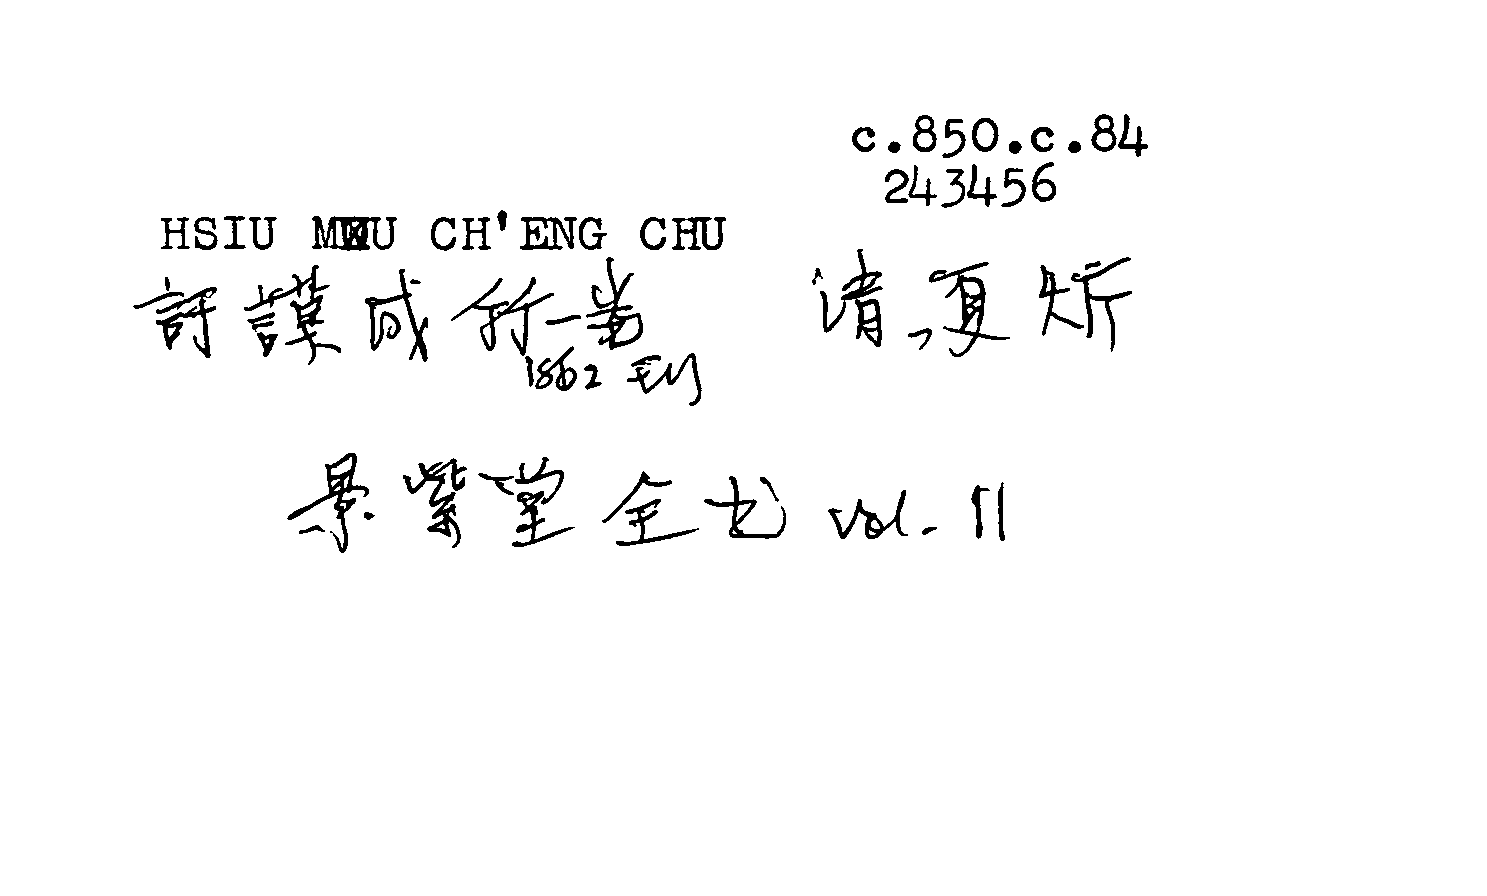 c.850.c.84
243456
HSIU MU CH'ENG CHU
訏謨成竹一卷 清、夏炘
1862 刊
景紫堂全书 vol. 11